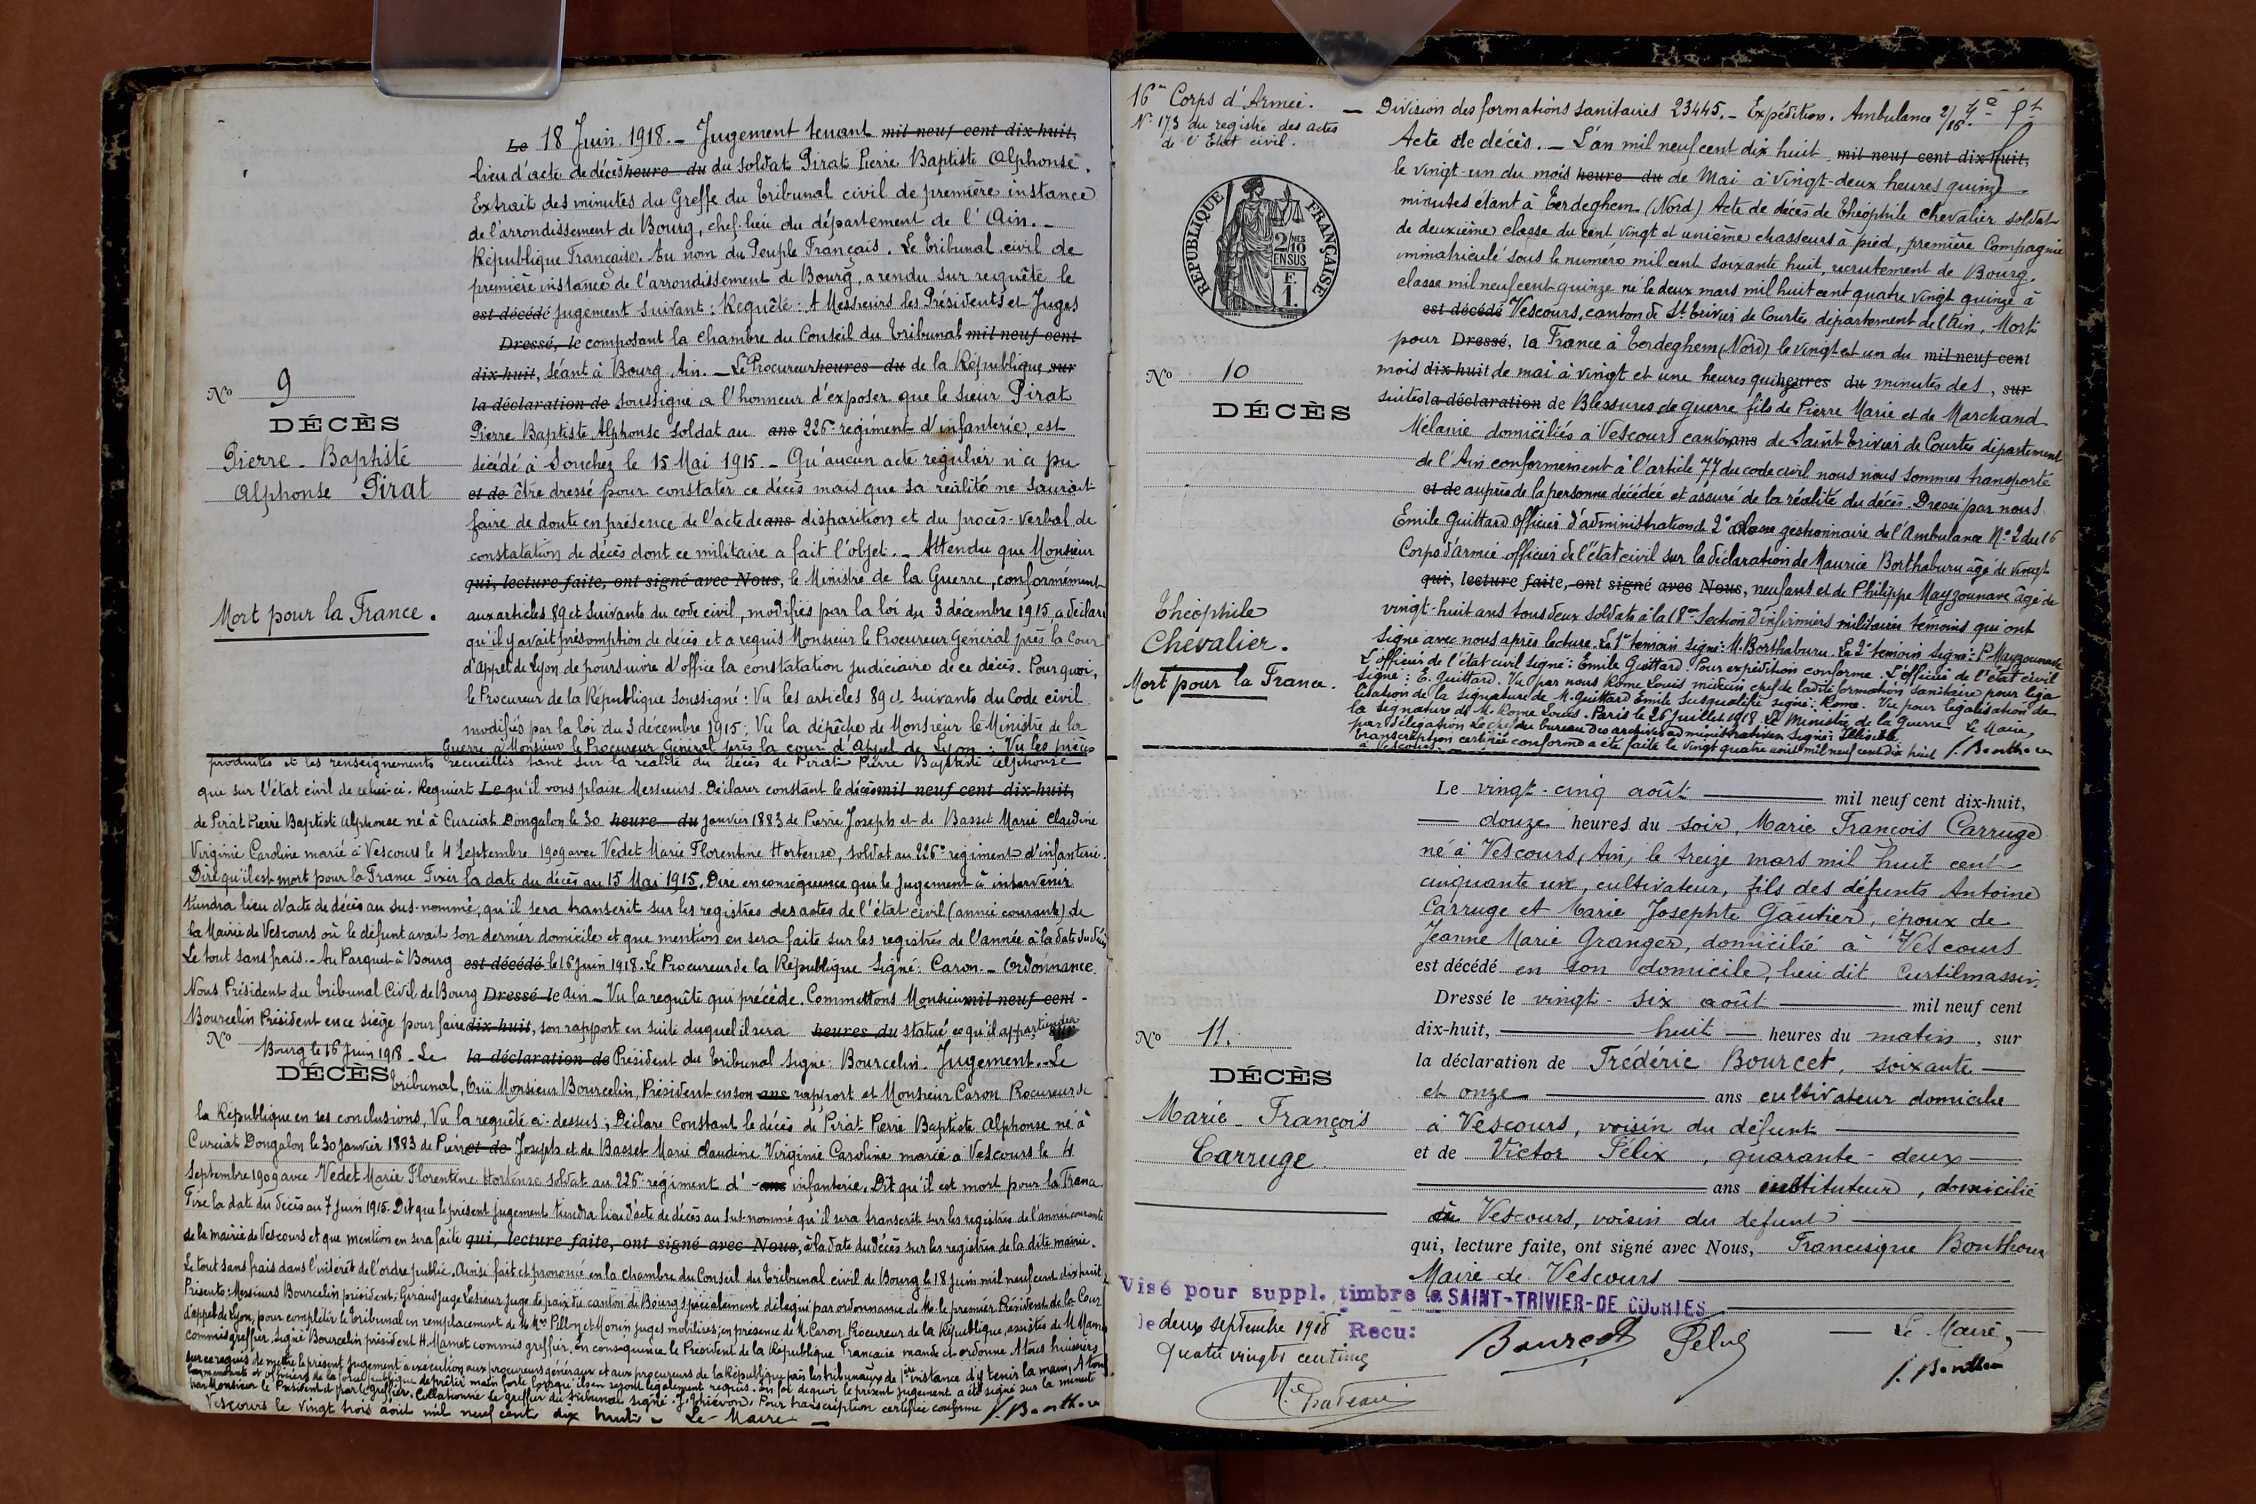 Le 18 Juin 1918. - Jugement tenant mil neuf cent dix-huit,
lieu d'acte de décès heure du du soldat Pirat Pierre Baptiste Alphonse.
Extrait des minutes du Greffe du Tribunal civil de première instance
de l'arrondissement de Bourg, chef-lieu du département de l'Ain. -
République Française. Au nom du Peuple Français. Le Tribunal civil de
première instance de l'arrondissement de Bourg, a rendu sur requête le
est décédé jugement suivant : Requête : A Messieurs les Présidents et Juges
Dressé, le composant la Chambre du Conseil du Tribunal mil neuf cent
dix-huit, séant à Bourg, Ain. - Le Procureur heures du de la République sur
la déclaration de soussigné a l'honneur d'exposer que le sieur Pirat
Pierre Baptiste Alphonse soldat au ans 226e régiment d'infanterie, est
décédé à Souchez le 15 Mai 1915. - Qu'aucun acte régulier n'a pu
et de être dressé pour constater ce décès mais que sa réalité ne saurait
faire de doute en présence de l'acte de ans disparition et du procès-verbal de
constatation de décès dont ce militaire a fait l'objet. - Attendu que Monsieur
qui, lecture faite, ont signé avec Nous, le Ministre de la Guerre, conformément
aux articles 89 et suivants du code civil, modifiés par la loi du 3 décembre 1915, a déclaré
qu'il y avait présomption de décès et a requis Monsieur le Procureur Général près la Cour
d'Appel de Lyon de poursuivre d'office la constatation judiciaire de ce décès. Pourquoi,
le Procureur de la République soussigné : Vu les articles 89 et suivants du Code civil
modifiés par la loi du 3 décembre 1915; Vu la dépêche de Monsieur le Ministre de la
Guerre à Monsieur le Procureur Général près la cour d'Appel de Lyon ; Vu les pièces
No 9
DÉCÈS
Pierre - Baptiste
Alphonse Pirat
Mort pour la France.
produites et les renseignements recueillis tant sur la réalité du décès de Pirat Pierre Baptiste Alphonse
que sur l'état civil de celui-ci. Requiert Le qu'il vous plaise Messieurs. Déclarer constant le décès mil neuf cent dix-huit,
de Pirat Pierre Baptiste Alphonse né à Curciat Dongalon le 30 heure du janvier 1883 de Pierre Joseph et de Basset Marie Claudine
Virginie Caroline marié à Vescours le 4 Septembre 1909 avec Vedet Marie Florentine Hortense, soldat au 226e régiment d'infanterie.
Dire qu'il est mort pour la France Fixer la date du décès au 15 Mai 1915. Dire en conséquence que le Jugement à intervenir
tiendra lieu d'acte de décès au sus-nommé, qu'il sera transcrit sur les registres des actes de l'état civil (année courante) de
la Mairie de Vescours où le défunt avait son dernier domicile et que mention en sera faite sur les registres de l'année à la date du décès
Le tout sans frais. - Au Parquet à Bourg est décédé le 16 juin 1918. Le Procureur de la République Signé : Caron. - Ordonnance.
Nous Président du Tribunal Civil de Bourg Dressé le Ain - Vu la requête qui précède. Commettons Monsieur mil neuf cent -
Bourcelin Président en ce siège pour faire dix-huit, son rapport en suite duquel il sera heures du statué ce qu'il appartiendra sur
No Bourg le 16 Juin 1918 - Le la déclaration de Président du Tribunal Signé : Bourcelin. Jugement. - Le
DÉCÈS Tribunal, Ouï Monsieur Bourcelin, Président en son ans rapport et Monsieur Caron Procureur de
la République en ses conclusions, Vu la requête ci-dessus ; Déclare Constant le décès de Pirat Pierre Baptiste Alphonse né à
Curciat Dongalon le 30 janvier 1883 de Pierre et de Joseph et de Basset Marie Claudine Virginie Caroline marié à Vescours le 4
Septembre 1909 avec Vedet Marie Florentine Hortense soldat au 226e régiment d' ans infanterie. Dit qu'il est mort pour la France
Fixe la date du décès au 7 Juin 1915. Dit que le présent jugement tiendra lieu d'acte de décès au sus-nommé qu'il sera transcrit sur les registres de l'année courante
de la mairie de Vescours et que mention en sera faite qui, lecture faite, ont signé avec Nous, à la date du décès sur les registres de la dite mairie.
Le tout sans frais dans l'intérêt de l'ordre public. Ainsi fait et prononcé en la chambre du Conseil du Tribunal civil de Bourg le 18 juin mil neuf cent dix huit
Présents : Messieurs Bourcelin président, Giraud juge Lesieur Juge de paix du canton de Bourg spécialement délégué par ordonnance de M. le premier Président de la Cour
d'appel de Lyon, pour compléter le tribunal en remplacement de MM. Pillon et Monin juges mobilisés, en présence de M. Caron Procureur de la République, assistés de M. Mamet
commis greffier. Signé Bourcelin président H. Mamet commis greffier. En conséquence le Président de la République Française mande et ordonne A tous huissiers
sur ce requis de mettre le présent Jugement à exécution aux procureurs généraux et aux procureurs de la République près les tribunaux de 1ère instance d'y tenir la main, A tous
commandants et officiers de la force publique de prêter main forte lorsqu'ils en seront légalement requis. En foi de quoi le présent jugement a été signé sur la minute
par Monsieur le Président et par le greffier. Collationné Le greffier du tribunal signé : J. Thiévon. Pour transcription certifiée conforme J. Bonthoux
Vescours le vingt trois août mil neuf cent dix huit - Le Maire -
16me Corps d'Armée.
No 173 du registre des actes
de l'Etat civil.
- Division des formations sanitaires 23445. - Expédition. Ambulance 2/16.
Acte de décès. - L'an mil neuf cent dix huit mil neuf cent dix-huit,
le vingt-un du mois heure du de Mai à vingt-deux heures quinze
minutes étant à Terdeghem (Nord) Acte de décès de Théophile Chevalier soldat
de deuxième classe du cent vingt et unième chasseurs à pied, première Compagnie
immatriculé sous le numéro mil cent soixante huit, recrutement de Bourg,
classe mil neuf cent quinze né le deux mars mil huit cent quatre vingt quinze à
est décédé Vescours, canton de St Trivier de Courtes département de l'Ain, Mort
pour Dressé, la France à Terdeghem (Nord) le vingt et un du mil neuf cent
mois dix-huit de mai à vingt et une heures quinze heures du minutes des, sur
suites la déclaration de Blessures de guerre fils de Pierre Marie et de Marchand
Mélanie domiciliés à Vescours canton ans de Saint Trivier de Courtes département
de l'Ain conformément à l'article 77 du code civil nous nous sommes transporté
et de auprès de la personne décédée et assuré de la réalité du décès. Dressé par nous
Emile Guittard Officier d'administration de 2e classe gestionnaire de l'Ambulance No 2 du 16
Corps d'armée officier de l'état civil sur la déclaration de Maurice Borthaburu âgé de vingt
qui, lecture faite, ont signé avec Nous, neuf ans et de Philippe Mayzounave âgé de
vingt-huit ans tous deux soldats à la 18me Section d'infirmiers militaires témoins qui ont
signé avec nous après lecture. Le 1er témoin signé : M. Borthaburu. Le 2e témoin signé : P. Mayzounave
L'officier de l'état civil signé : Emile Guittard. Pour expédition conforme. L'officier de l'état civil
signé : E. Guittard. Vu par nous Rome Louis médecin chef de ladite formation sanitaire pour léga
lisation de la signature de M. Guittard Emile susqualifié signé : Rome. Vu pour légalisation de
la signature de M. Rome Louis. Paris le 26 Juillet 1918 Le Ministre de la Guerre Le Maire,
par délégation Le chef du bureau des archives administratives Signé : Illisible
transcription certifiée conforme a été faite le vingt quatre août mil neuf cent dix huit J. Bonthoux
à Vescours
RÉPUBLIQUE FRANÇAISE
2/10 EN SUS
F. 1.
No 10
DÉCÈS
Théophile
Chevalier.
Mort pour la France.
Le vingt-cinq août mil neuf cent dix-huit,
douze heures du soir, Marie François Carruge
né à Vescours, Ain, le treize mars mil huit cent
cinquante un, cultivateur, fils des défunts Antoine
Carruge et Marie Josephte Gautier, époux de
Jeanne Marie Granger, domicilié à Vescours
est décédé en son domicile, lieu dit Curtilmassin,
Dressé le vingt-six août mil neuf cent
dix-huit, huit heures du matin, sur
la déclaration de Frédéric Bourcet, soixante
et onze ans cultivateur domicilié
à Vescours, voisin du défunt
et de Victor Félix, quarante-deux
ans instituteur, domicilié
à Vescours, voisin du défunt
qui, lecture faite, ont signé avec Nous, Francisque Bonthoux
Maire de Vescours
No 11.
DÉCÈS
Marie - François
Carruge
Visé pour suppl. timbre à SAINT-TRIVIER-DE COURTES
le deux septembre 1918 Recu:
quatre vingts centimes
Bourcet Félix
Le Maire,
J. Bonthoux